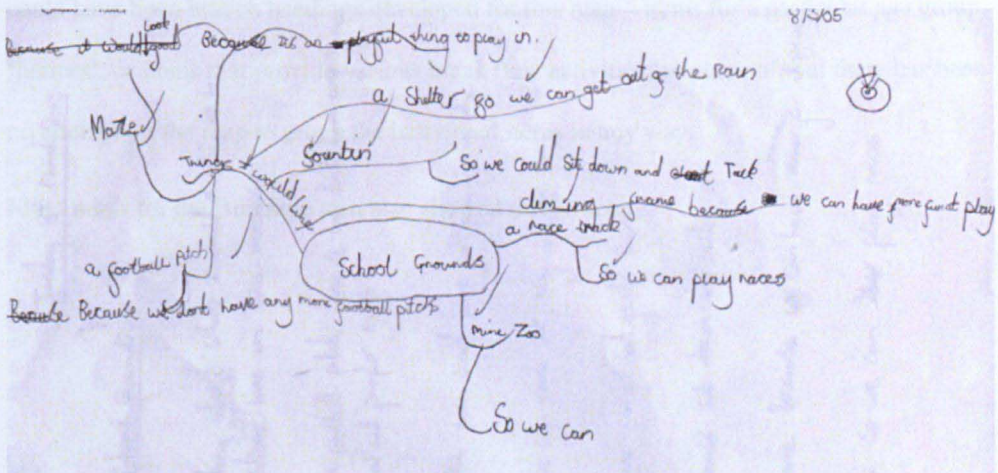 8/3/05
look
because it would good Because its a playful thing to play in.
a Shelter So we can get out of the Rain
Mate
Things
would like
So we could sit down and Talk
climing frame because we can have more fun at play
a race track
School Grounds
So we can play races
a football pitch
Because Because we dont have any more football pitchs
mini Zoo
So we can